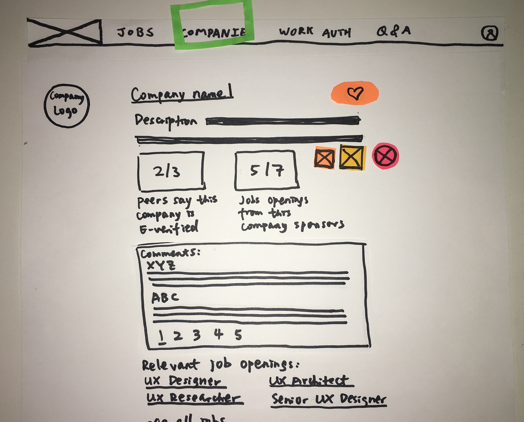 JOBS COMPANIE WORK AUTH Q&A
Company Logo
Company name 1
Description
2/3 5/7
Peers say this company is E-verified
Jobs openings from this company sponsors
Comments:
XYZ
ABC
1 2 3 4 5
Relevant job openings:
UX Designer UX Architect
UX Researcher Senior UX Designer
see all jobs